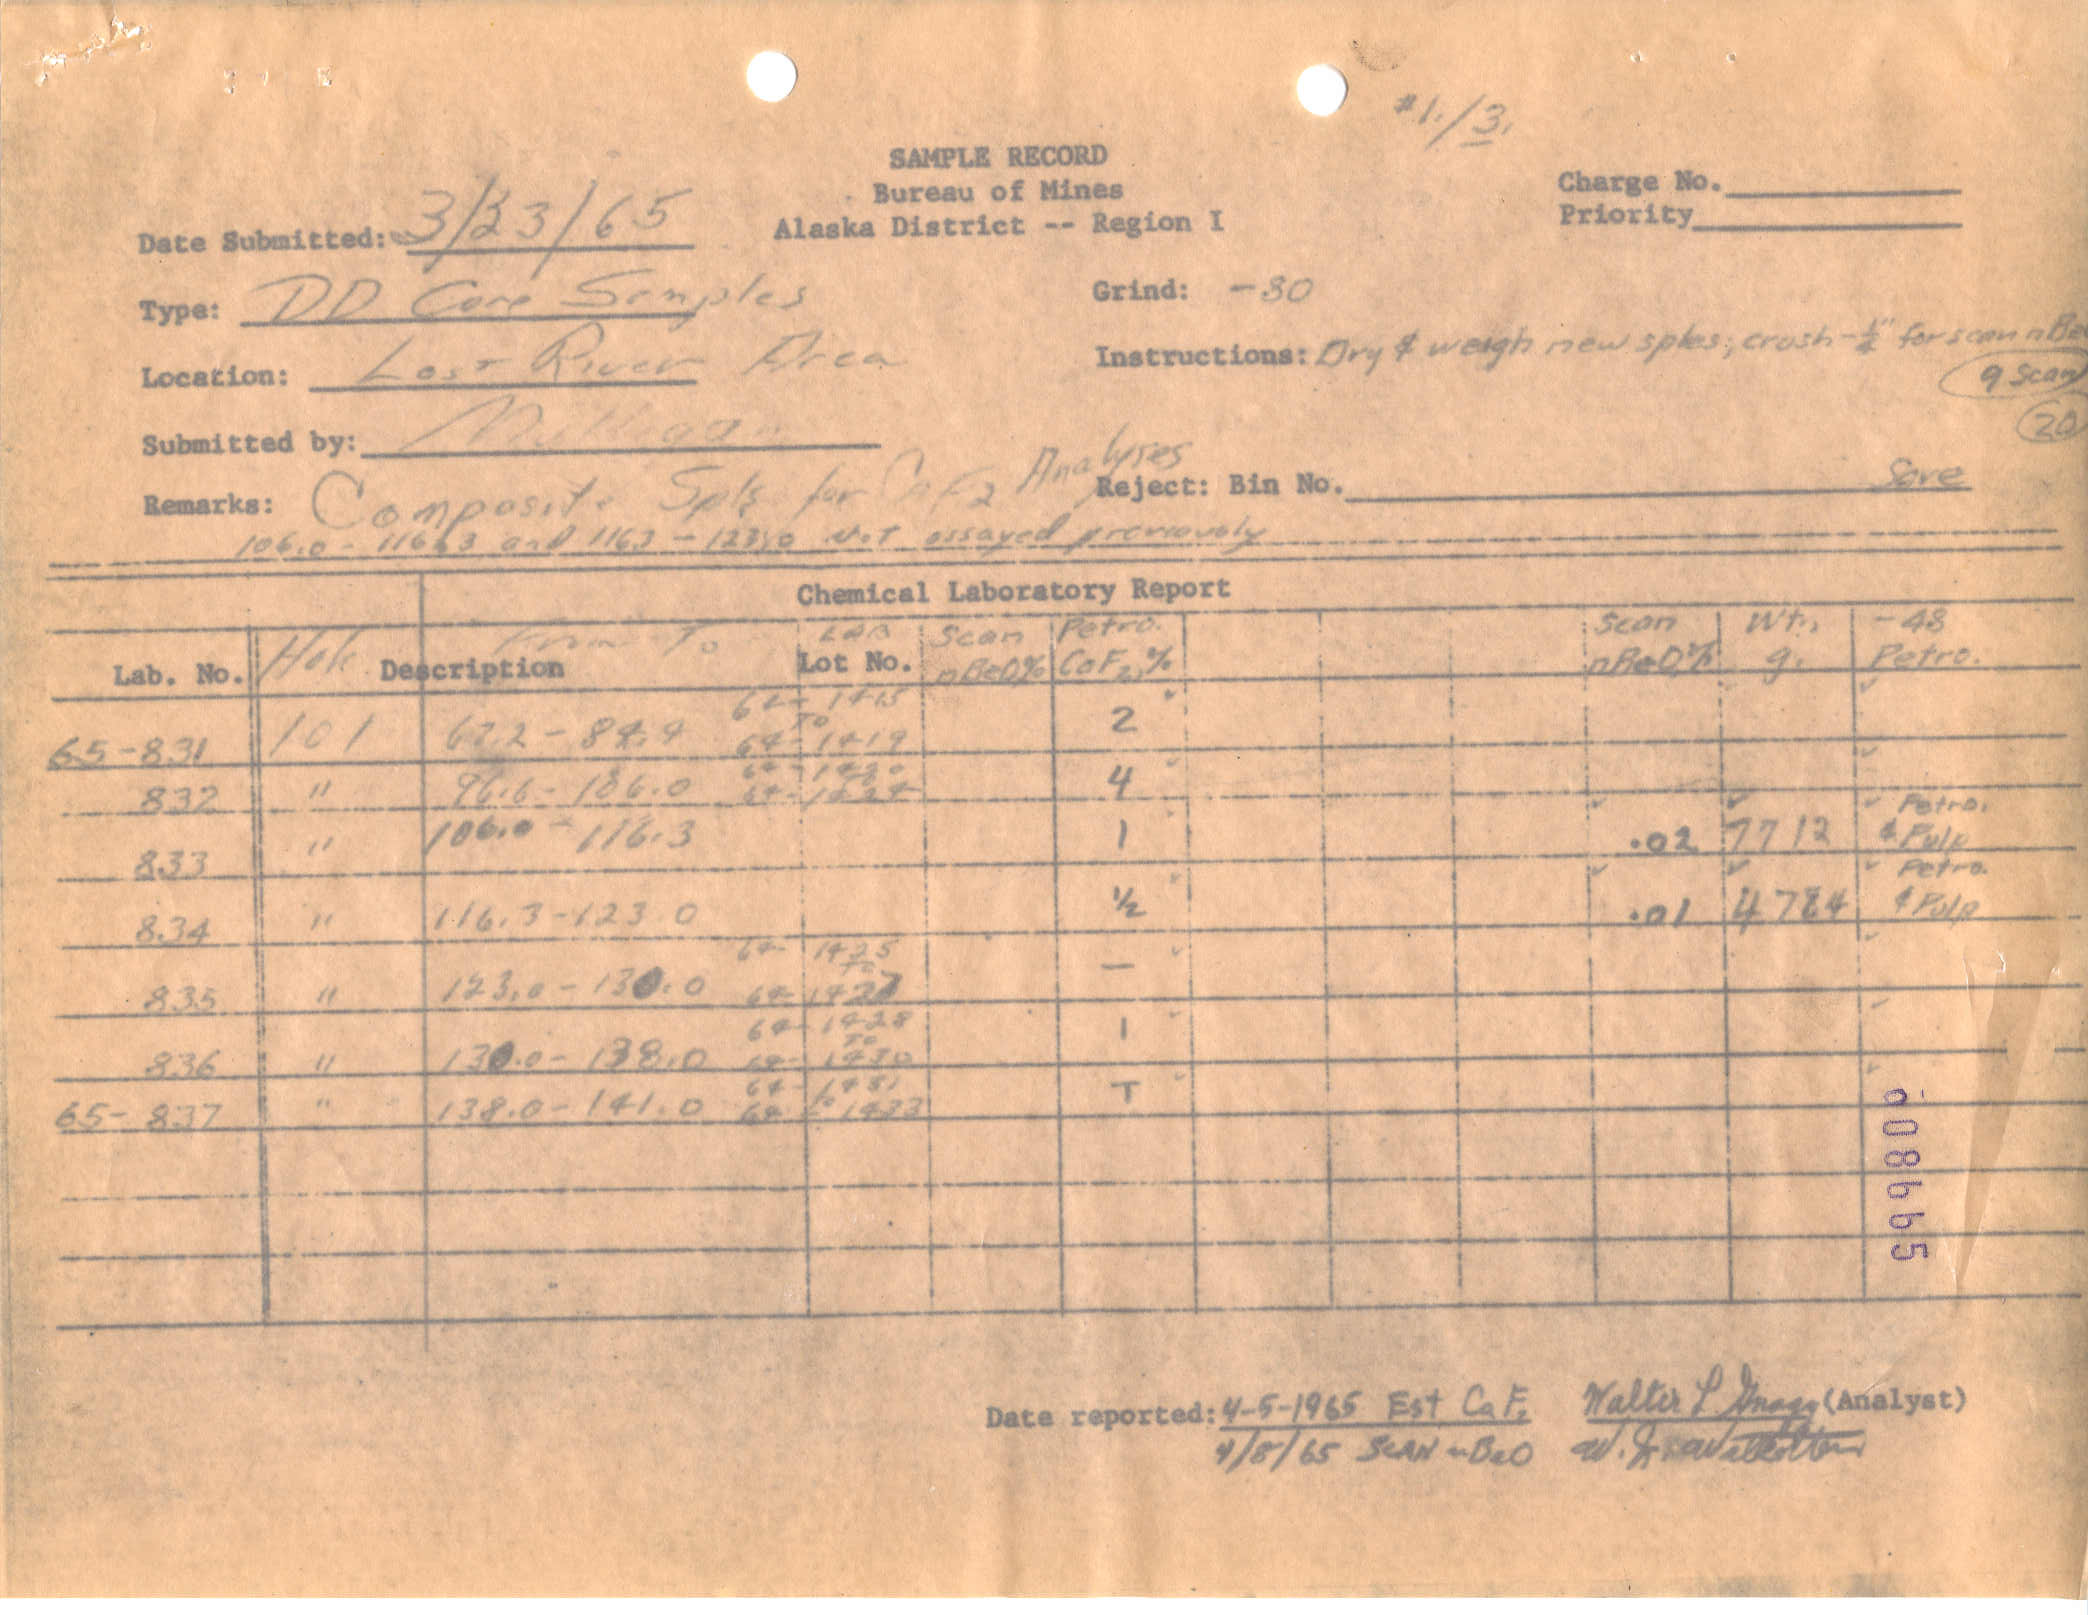 #1./3.
SAMPLE RECORD
Bureau of Mines
Alaska District -- Region I
Charge No.
Priority
Date Submitted: 3/23/65
Type: DD Core Samples
Grind: -80
Location: Lost River Area
Instructions: Dry & weigh new sples; crush -¼" for scan nBeO
9 Scan
20
Submitted by: Mulligan
Remarks: Composite Spls for CaF2 Analyses
Reject: Bin No. Save
106.0 - 116.3 and 116.3 - 123.0 Not assayed previously
Chemical Laboratory Report
Lab. No. Hole Description From To LAB Lot No. Scan nBeO% Petro. CaF2,% Scan nBeO,% Wt., g. -48 Petro.
65-831 101 67.2 - 84.4 64-1415 TO 64-1419 2
832 " 96.6 - 106.0 64-1420 64-1424 4
833 " 106.0 - 116.3 1 .02 7712 Petro. & Pulp
834 " 116.3-123.0 ½ .01 4784 Petro. & Pulp
835 " 123.0 - 130.0 64-1425 TO 64-1427 —
836 " 130.0 - 138.0 64-1428 TO 64-1430 1
65-837 " 138.0 - 141.0 64-1431 to 64-1433 T
Date reported: 4-5-1965 Est CaF2 Walter L Gnagy (Analyst)
4/8/65 SCAN nBeO W. J.